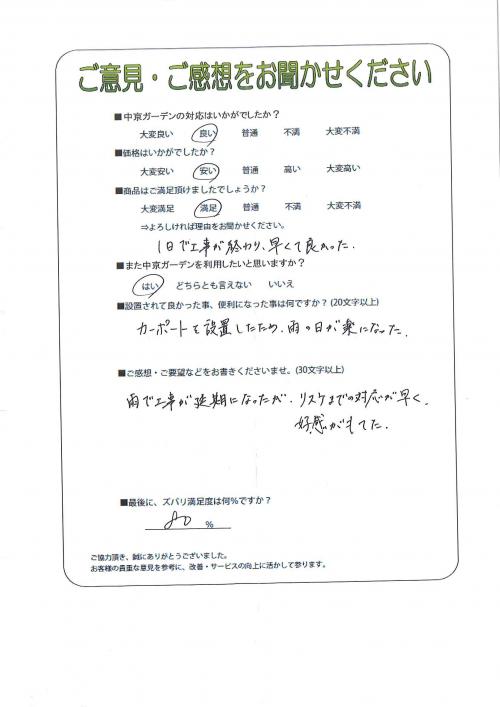 ご意見・ご感想をお聞かせください
■中京ガーデンの対応はいかがでしたか？
大変良い 良い 普通 不満 大変不満
■価格はいかがでしたか？
大変安い 安い 普通 高い 大変高い
■商品はご満足頂けましたでしょうか？
大変満足 満足 普通 不満 大変不満
⇒よろしければ理由をお聞かせください。
1日で工事が終わり、早くて良かった.
■また中京ガーデンを利用したいと思いますか？
はい どちらとも言えない いいえ
■設置されて良かった事、便利になった事は何ですか？(20文字以上)
カーポートを設置したため、雨の日が楽になった.
■ご感想・ご要望などをお書きくださいませ。(30文字以上)
雨で工事が延期になったが、リスケまでの対応が早く、
好感がもてた.
■最後に、ズバリ満足度は何%ですか？
80 %
ご協力頂き、誠にありがとうございました。
お客様の貴重な意見を参考に、改善・サービスの向上に活かして参ります。